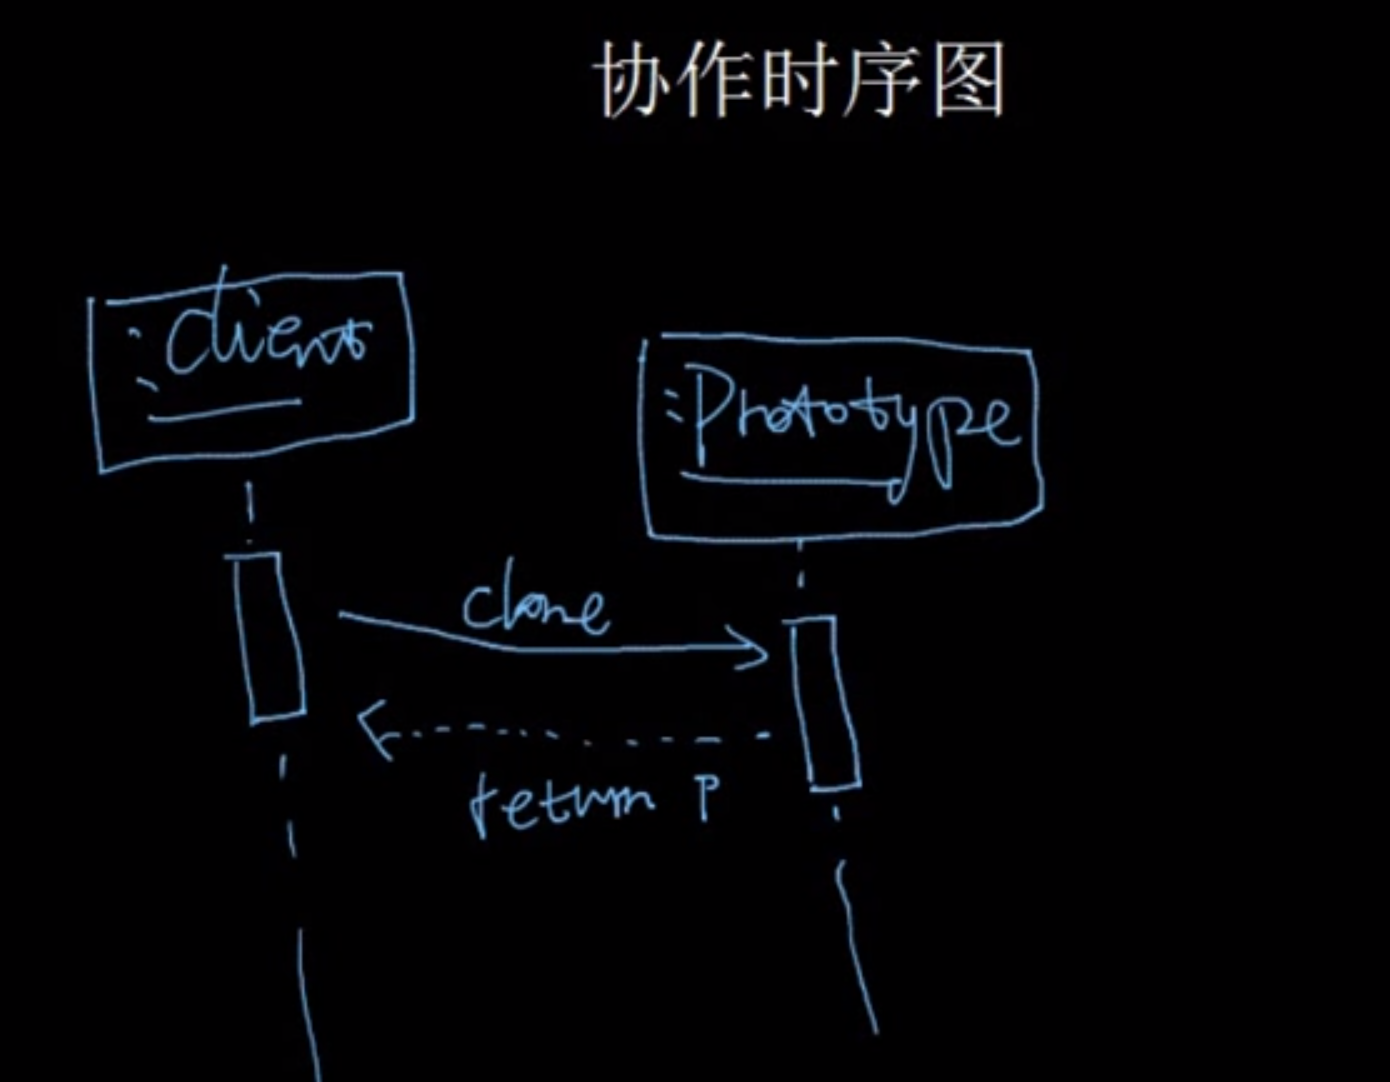 协作时序图
:client
:Prototype
clone
return P